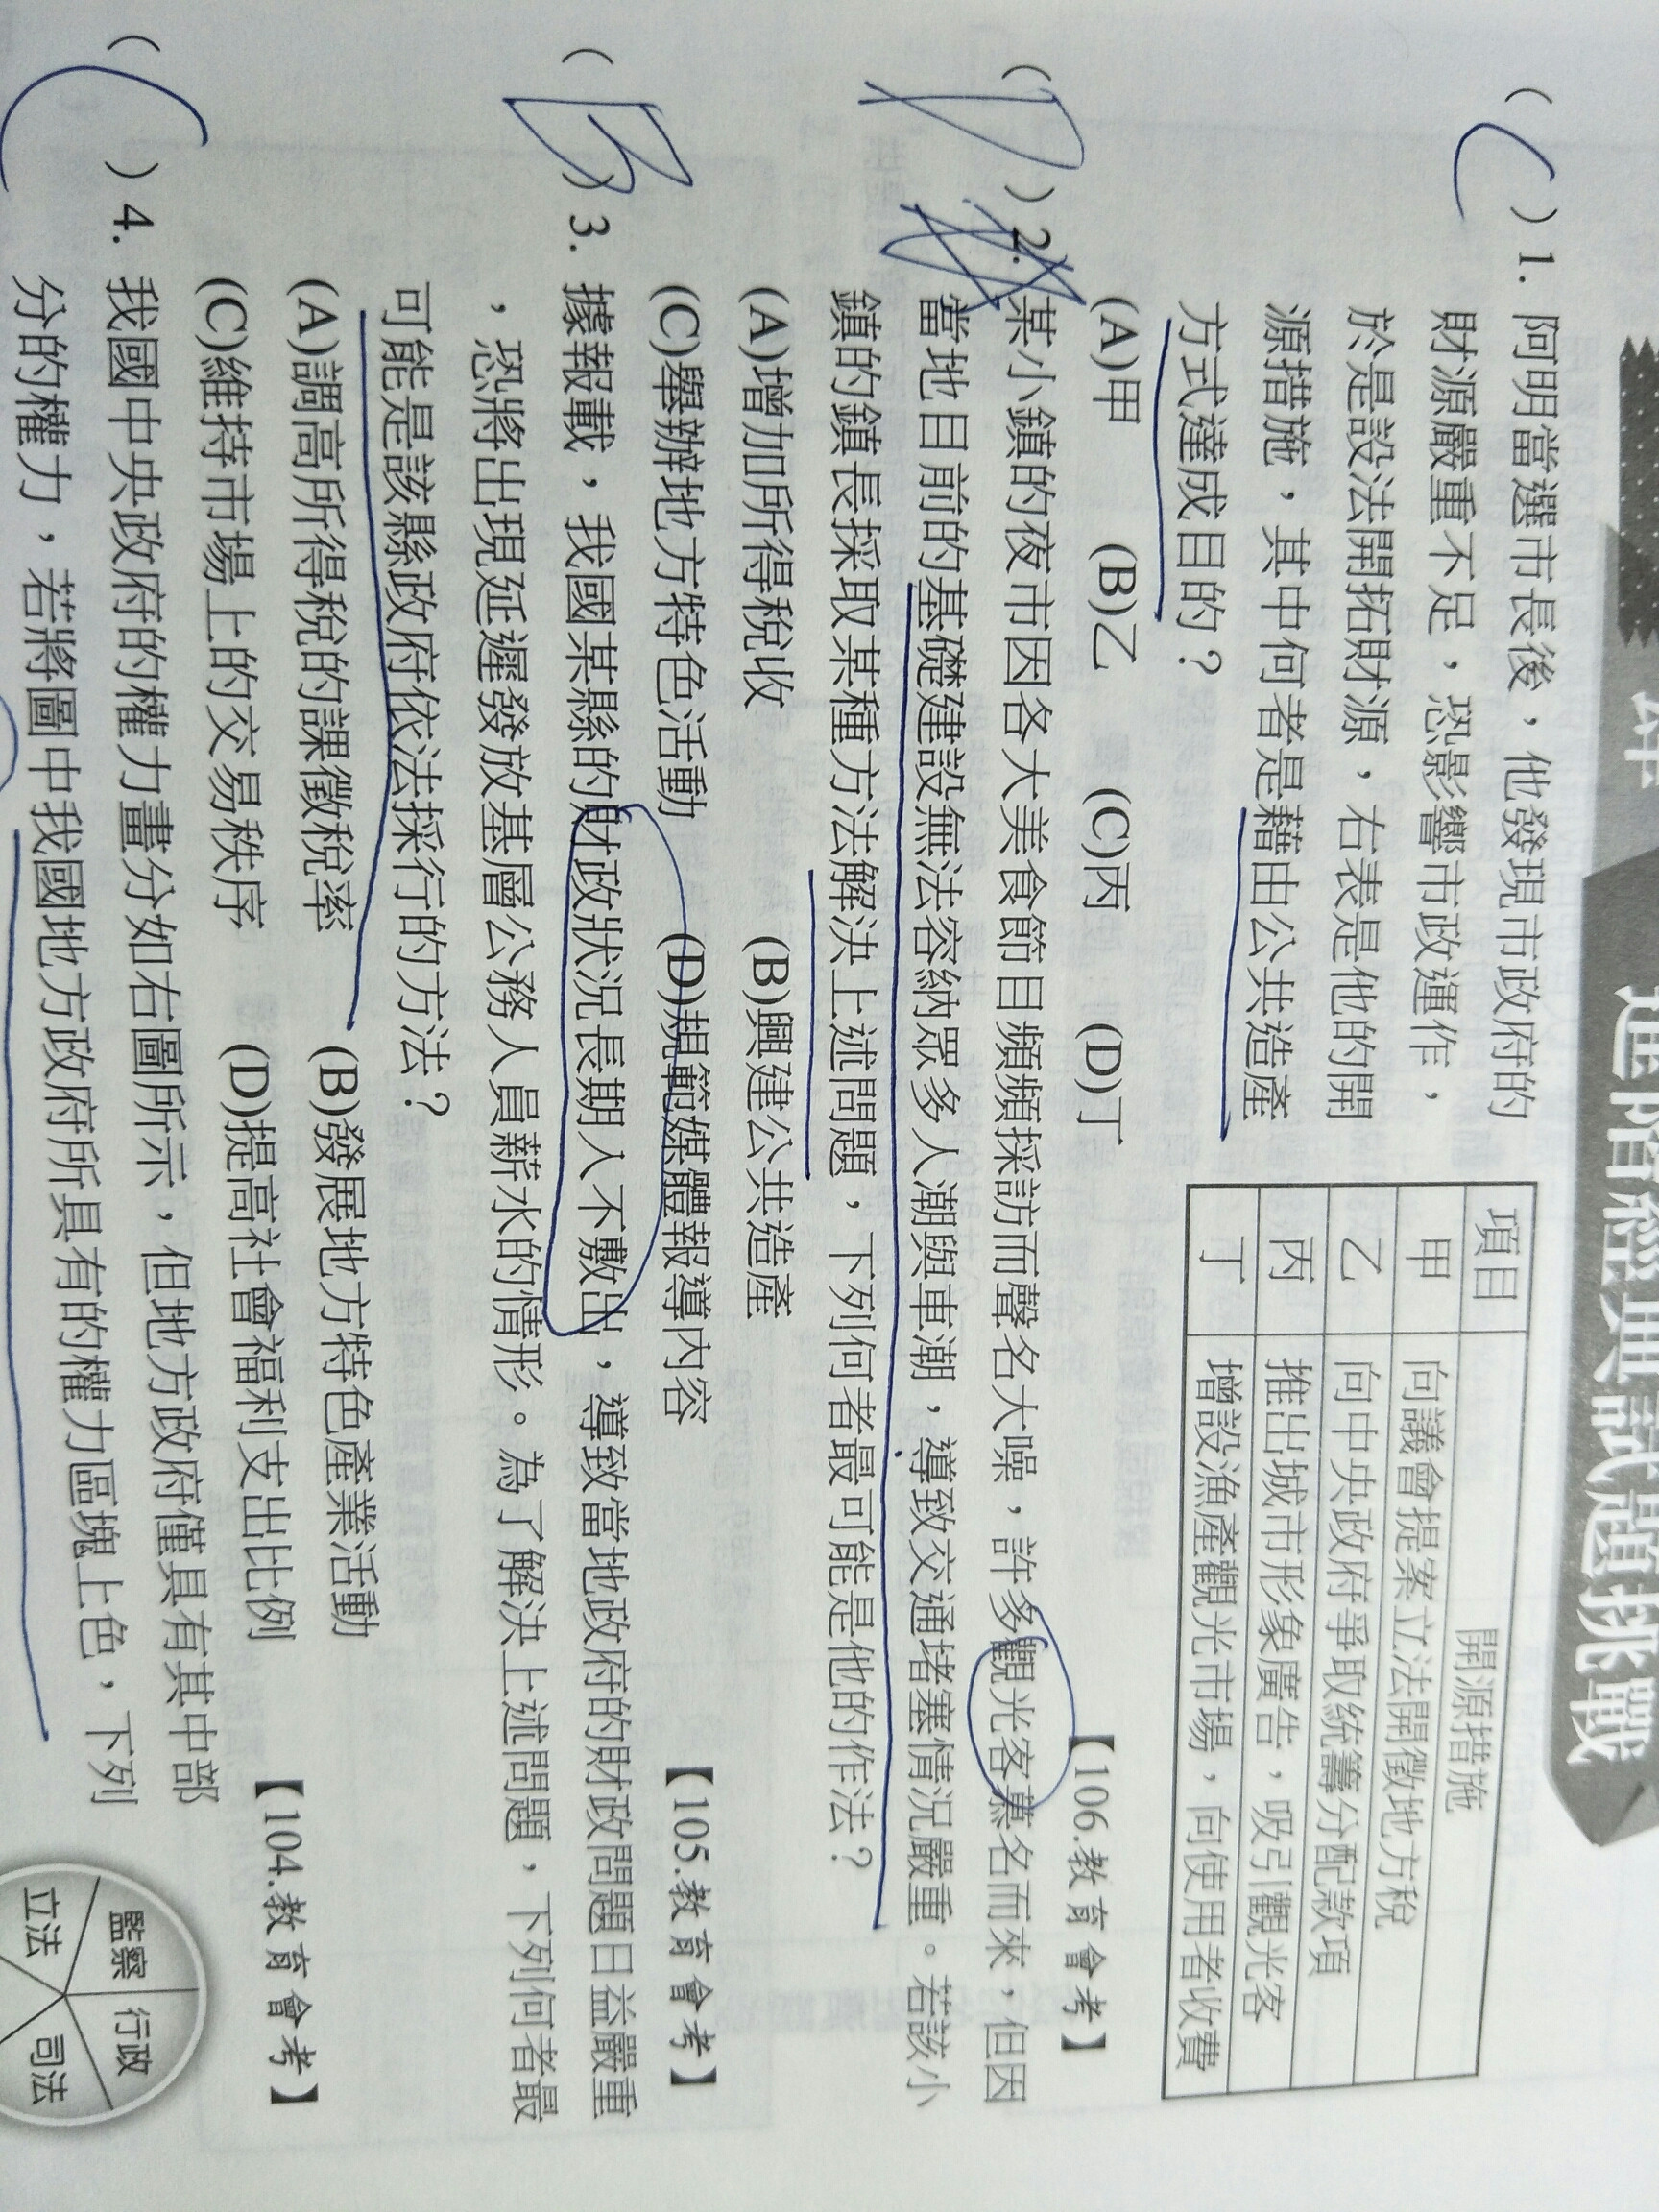 進階經典試題挑戰
( C )1. 阿明當選市長後，他發現市政府的
財源嚴重不足，恐影響市政運作，
於是設法開拓財源，右表是他的開
源措施，其中何者是藉由公共造產
方式達成目的？
(A)甲 (B)乙 (C)丙 (D)丁
【106.教育會考】
項目 開源措施
甲 向議會提案立法開徵地方稅
乙 向中央政府爭取統籌分配款項
丙 推出城市形象廣告，吸引觀光客
丁 增設漁產觀光市場，向使用者收費
( D )2. 某小鎮的夜市因各大美食節目頻頻採訪而聲名大噪，許多觀光客慕名而來，但因
當地目前的基礎建設無法容納眾多人潮與車潮，導致交通堵塞情況嚴重。若該小
鎮的鎮長採取某種方法解決上述問題，下列何者最可能是他的作法？
(A)增加所得稅收 (B)興建公共造產
(C)舉辦地方特色活動 (D)規範媒體報導內容
【105.教育會考】
( B )3. 據報載，我國某縣的財政狀況長期入不敷出，導致當地政府的財政問題日益嚴重
，恐將出現延遲發放基層公務人員薪水的情形。為了解決上述問題，下列何者最
可能是該縣政府依法採行的方法？
(A)調高所得稅的課徵稅率 (B)發展地方特色產業活動
(C)維持市場上的交易秩序 (D)提高社會福利支出比例
【104.教育會考】
( C )4. 我國中央政府的權力畫分如右圖所示，但地方政府僅具有其中部
分的權力，若將圖中我國地方政府所具有的權力區塊上色，下列
監察 行政
立法 司法